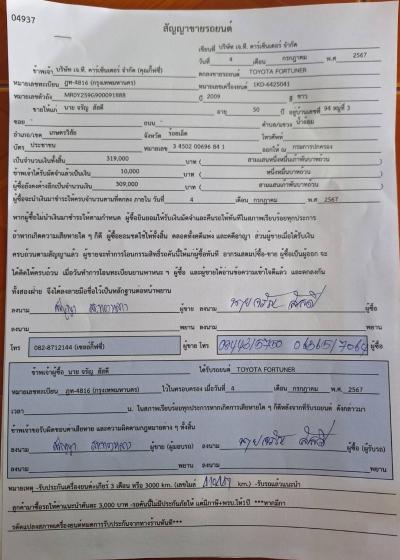 04937
สัญญาขายรถยนต์
เขียนที่ บริษัท เจ.ที. คาร์เซ็นเตอร์ จำกัด
วันที่ 4 เดือน กรกฎาคม พ.ศ 2567
ข้าพเจ้า บริษัท เจ.ที. คาร์เซ็นเตอร์ จำกัด (คุณกี้ฟซี่) ตกลงขายรถยนต์ TOYOTA FORTUNER
หมายเลขทะเบียน ฎห-4816 (กรุงเทพมหานคร) หมายเลขเครื่องยนต์ 1KD-6425041
หมายเลขตัวถัง MR0YZ59G900091888 ปี 2009 สี ขาว
ขายให้แก่ นาย จรัญ สัตดี อายุ 50 ปี อยู่บ้านเลขที่ 94 หมู่ที่ 3
ซอย - ถนน - ตำบล/แขวง น้ำอ้อม
อำเภอ/เขต เกษตรวิสัย จังหวัด ร้อยเอ็ด โทรศัพท์
บัตร ประชาชน หมายเลข 3 4502 00696 84 1 ออกให้ ณ กรมการปกครอง
เป็นจำนวนเงินทั้งสิ้น 319,000 บาท ( สามแสนหนึ่งหมื่นเก้าพันบาทถ้วน )
ข้าพเจ้าได้รับมัดจำแล้วเป็นเงิน 10,000 บาท ( หนึ่งหมื่นบาทถ้วน )
ผู้ซื้อยังคงค้างอีกเป็นจำนวนเงิน 309,000 บาท ( สามแสนเก้าพันบาทถ้วน )
ผู้ซื้อจะนำเงินมาชำระให้ครบจำนวนตามที่ตกลง ภายใน วันที่ 4 เดือน กรกฎาคม พ.ศ. 2567
หากผู้ซื้อไม่นำเงินมาชำระให้ตามกำหนด ผู้ซื้อยินยอมให้ริบเงินมัดจำและคืนรถให้ทันทีในสภาพเรียบร้อยทุกประการ
ถ้าหากเกิดความเสียหายใด ๆ ก็ดี ผู้ซื้อยอมชดใช้ให้ทั้งสิ้น ตลอดทั้งคดีแพ่ง และคดีอาญา ส่วนผู้ขายเมื่อได้รับเงิน
ครบถ้วนตามสัญญาแล้ว ผู้ขายจะทำการโอนกรรมสิทธิ์รถคันนี้ให้แก่ผู้ซื้อทันที อากรแสตมป์ซื้อ-ขาย ผู้ซื้อเป็นผู้ออก จะ
ได้คิดให้ครบถ้วน เมื่อวันทำการโอนทะเบียนยานพาหนะ ฯ ผู้ซื้อ และผู้ขายได้อ่านข้อความเข้าใจดีแล้ว และตกลงกัน
ทั้งสองฝ่าย จึงได้ลงลายมือชื่อไว้เป็นหลักฐานต่อหน้าพยาน
ลงนาม ผู้ขาย ลงนาม นาย จรัญ สัตดี ผู้ซื้อ
ลงนาม พยาน ลงนาม พยาน
โทร 082-8712144 (เซลล์กี้ฟซี่) ผู้ขาย โทร ผู้ซื้อ
ข้าพเจ้าผู้ซื้อ นาย จรัญ สัตดี ได้รับรถยนต์ TOYOTA FORTUNER
หมายเลขทะเบียน ฎห-4816 (กรุงเทพมหานคร) ไว้ในครอบครอง เมื่อวันที่ 4 เดือน กรกฎาคม พ.ศ. 2567
เวลา น. ในสภาพเรียบร้อยทุกประการหากเกิดการเสียหายใด ๆ ก็ดีหลังจากที่รับรถยนต์ ดังกล่าวมา
ข้าพเจ้าขอรับผิดชอบค่าเสียหาย และความผิดตามกฎหมายต่าง ๆ ทั้งสิ้น
ลงนาม ผู้ขาย (ผู้มอบรถ) ลงนาม นาย จรัญ สัตดี ผู้ซื้อ (ผู้รับรถ)
ลงนาม พยาน ลงนาม พยาน
หมายเหตุ -รับประกันเครื่องยนต์+เกียร์ 3 เดือน หรือ 3000 km. (เลขไมล์ km.) -รับรถแล้วแนะนำ
ลูกค้ามาซื้อรถให้ค่าแนะนำคันละ 3,000 บาท -รถคันนี้ไม่มีประกันภัยให้ แต่มีภาษี+พรบ.ให้1ปี ***หากมีกา
รดัดแปลงสภาพเครื่องยนต์หมดการรับประกันจากทางร้านทันที***